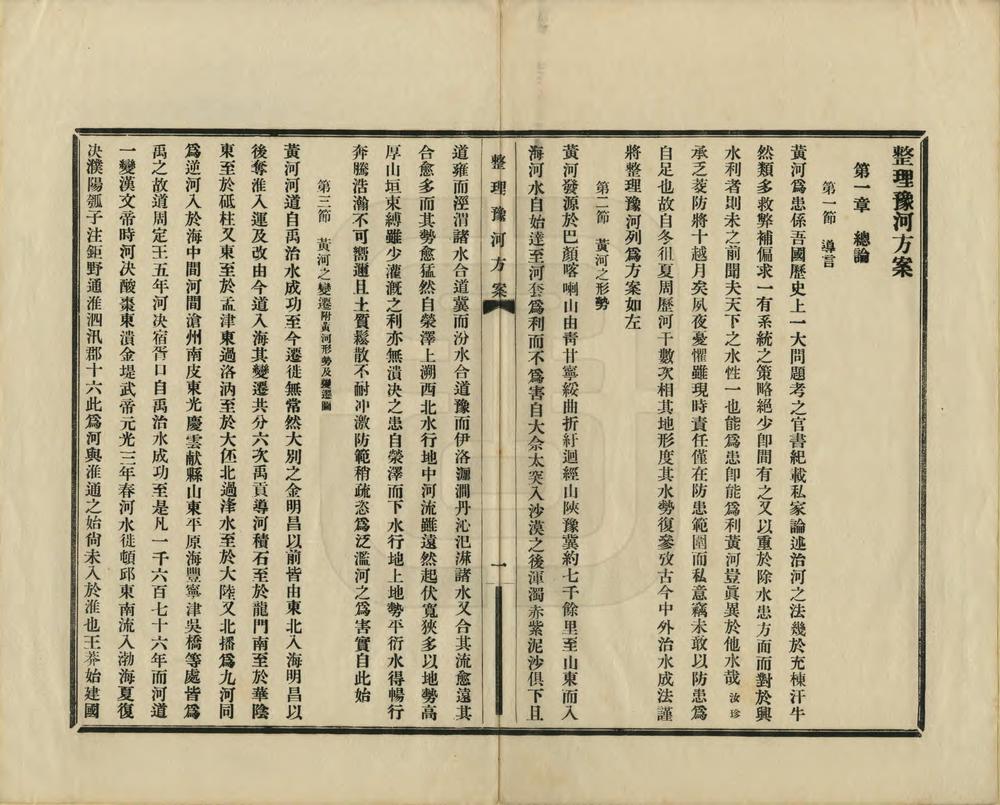 整理豫河方案
第一章　總論
第一節　導言
黃河爲患係吾國歷史上一大問題考之官書紀載私家論述治河之法幾於充棟汗牛
然類多救弊補偏求一有系統之策略絕少卽間有之又以重於除水患方面而對於興
水利者則未之前聞夫天下之水性一也能爲患卽能爲利黃河豈眞異於他水哉汝珍
承乏菱防將十越月矣夙夜憂懼雖現時責任僅在防患範圍而私意竊未敢以防患爲
自足也故自冬徂夏周歷河干數次相其地形度其水勢復參攷古今中外治水成法謹
將整理豫河列爲方案如左
第二節　黃河之形勢
黃河發源於巴顏喀喇山由靑甘寧綏曲折紆迴經山陝豫冀約七千餘里至山東而入
海河水自始達至河套爲利而不爲害自大佘太突入沙漠之後渾濁赤紫泥沙俱下且
整理豫河方案
一
道雍而涇渭諸水合道冀而汾水合道豫而伊洛瀍澗丹沁汜溹諸水又合其流愈遠其
合愈多而其勢愈猛然自滎澤上溯西北水行地中河流雖遠然起伏寬狹多以地勢高
厚山垣束縛雖少灌漑之利亦無潰決之患自滎澤而下水行地上地勢平衍水得暢行
奔騰浩瀚不可嚮邇且土質鬆散不耐冲激防範稍疏恣爲泛濫河之爲害實自此始
第三節　黃河之變遷附黃河形勢及變遷圖
黃河河道自禹治水成功至今遷徙無常然大別之金明昌以前皆由東北入海明昌以
後奪淮入運及改由今道入海其變遷共分六次禹貢導河積石至於龍門南至於華陰
東至於砥柱又東至於孟津東過洛汭至於大伾北過洚水至於大陸又北播爲九河同
爲逆河入於海中間河間滄州南皮東光慶雲献縣山東平原海豐寧津吳橋等處皆爲
禹之故道周定王五年河決宿胥口自禹治水成功至是凡一千六百七十六年而河道
一變漢文帝時河決酸棗東潰金堤武帝元光三年春河水徙頓邱東南流入渤海夏復
決濮陽瓠子注鉅野通淮泗汎郡十六此爲河與淮通之始尙未入於淮也王莽始建國